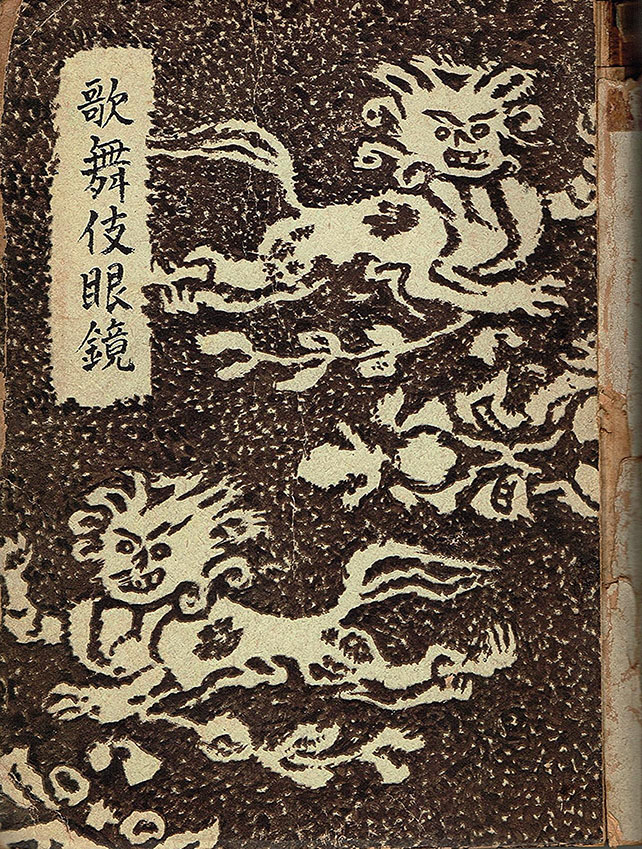 歌舞伎眼鏡